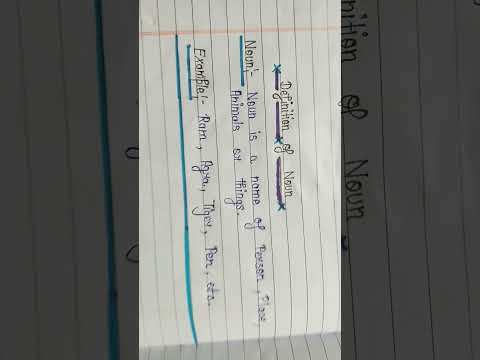 Definition of Noun
Noun:- Noun is a name of Person, Place,
Animals or things.
Example:- Ram, Agra, Tiger, Pen, etc.